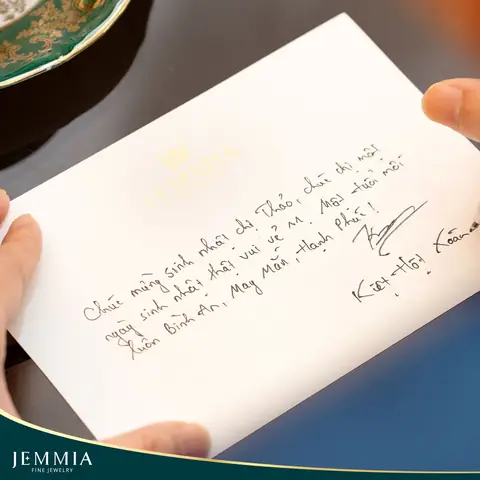 Chúc mừng sinh nhật chị Thảo, chúc chị một
ngày sinh nhật thật vui vẻ Một tuổi mới
luôn Bình An, May Mắn, Hạnh Phúc!
Kiệt Hột Xoàn
JEMMIA
FINE JEWELRY